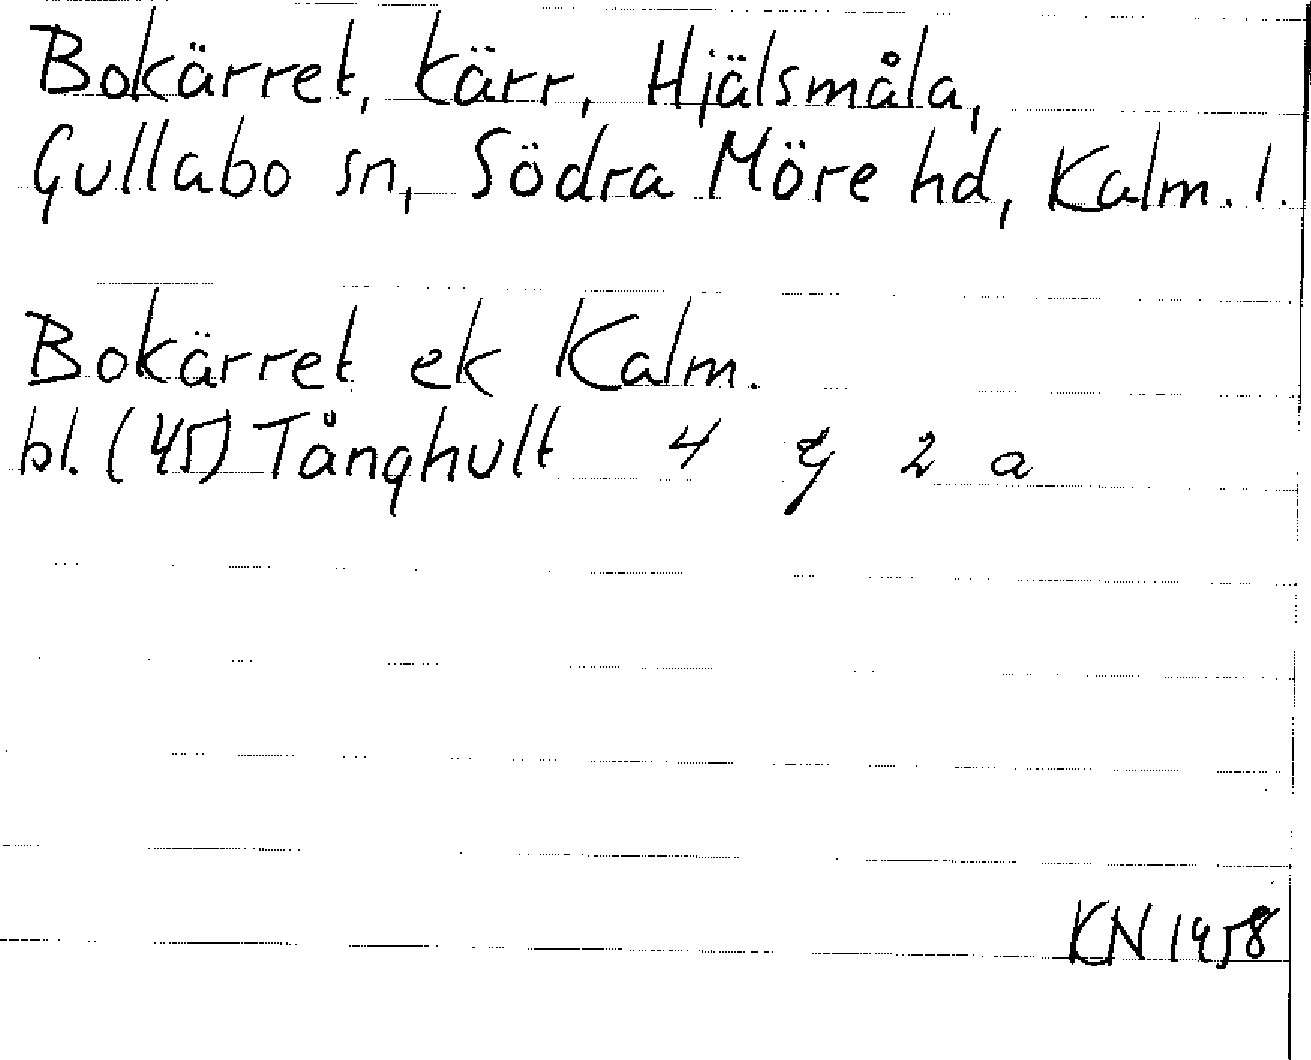 Bokärret, kärr, Hjälsmåla,
Gullabo sn, Södra Möre hd, Kalm. l.
Bokärret ek Kalm.
bl. (45) Tånghult 4 g 2 a
KN 1958